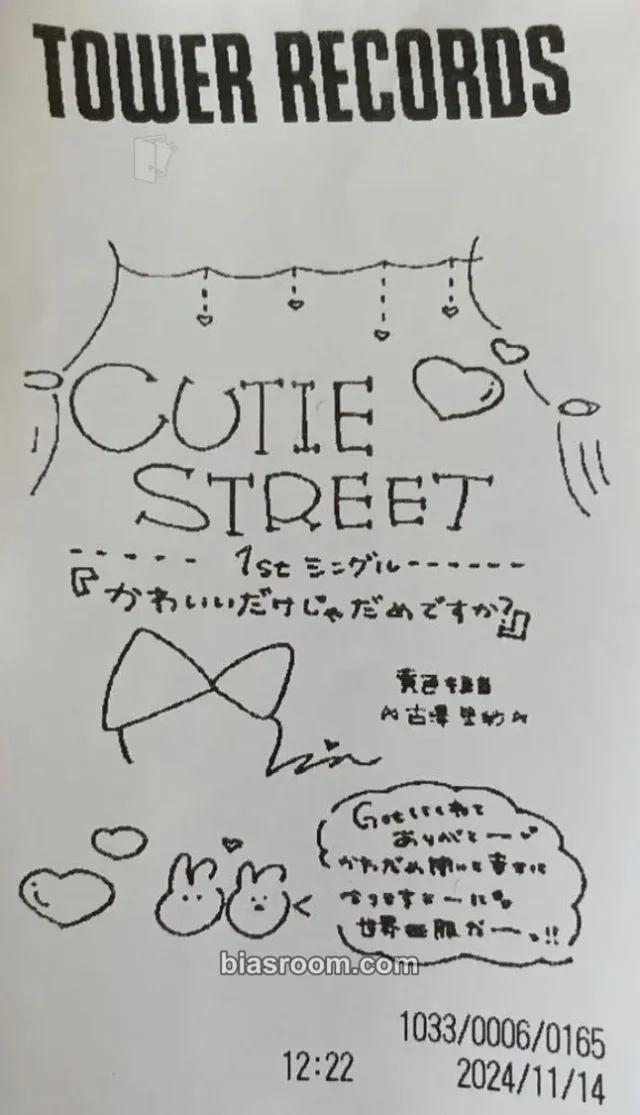 TOWER RECORDS
CUTIE
STREET
1stシングル
『かわいいだけじゃだめですか?』
黄色担当
古澤里紗
Getしてくれて
ありがとー
かわだめ聴いて幸せに
なりますよーに
世界征服だー!!
biasroom.com
1033/0006/0165
12:22 2024/11/14